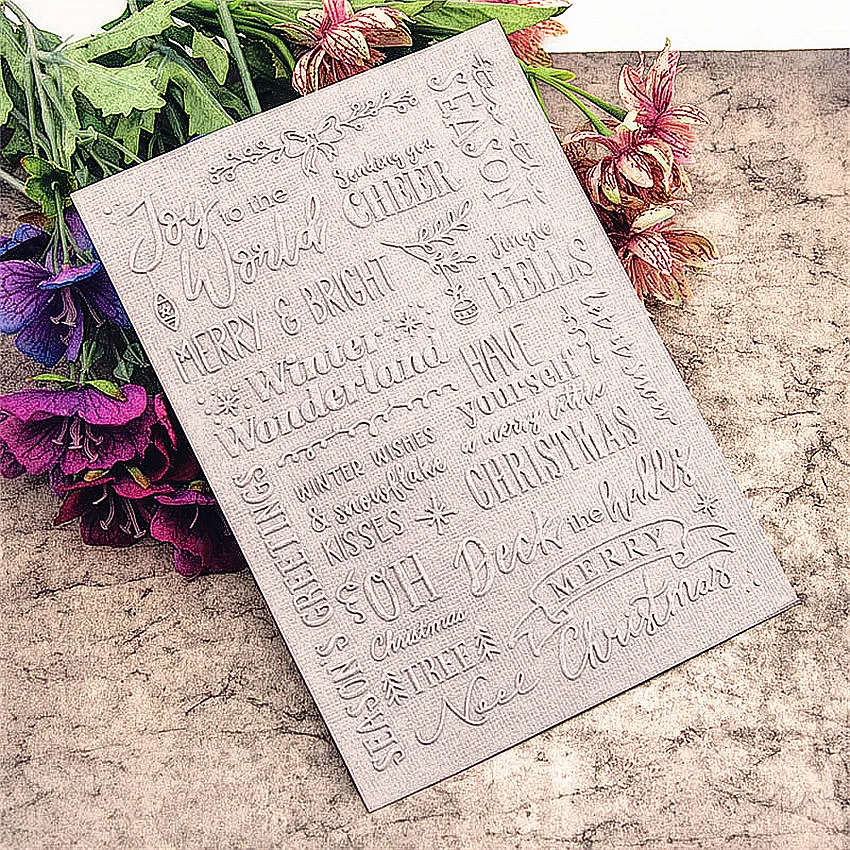 Joy
to the
World
Sending you
CHEER
SEASON
MERRY & BRIGHT
Jingle
BELLS
Winter
Wonderland
HAVE
yourself
a merry little
CHRISTMAS
WINTER WISHES
& snowflake
KISSES
SEASON'S GREETINGS
Deck the halls
OH
Christmas
TREE
MERRY
Christmas
Noel